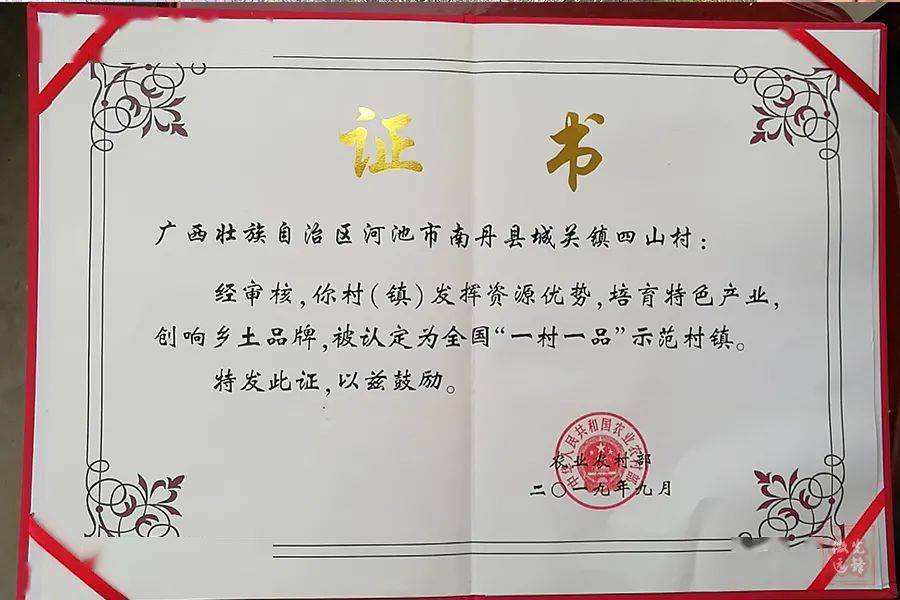 证 书
广西壮族自治区河池市南丹县城关镇四山村：
经审核，你村（镇）发挥资源优势，培育特色产业，
创响乡土品牌，被认定为全国“一村一品”示范村镇。
特发此证，以兹鼓励。
中华人民共和国农业农村部
农业农村部
二〇一九年九月